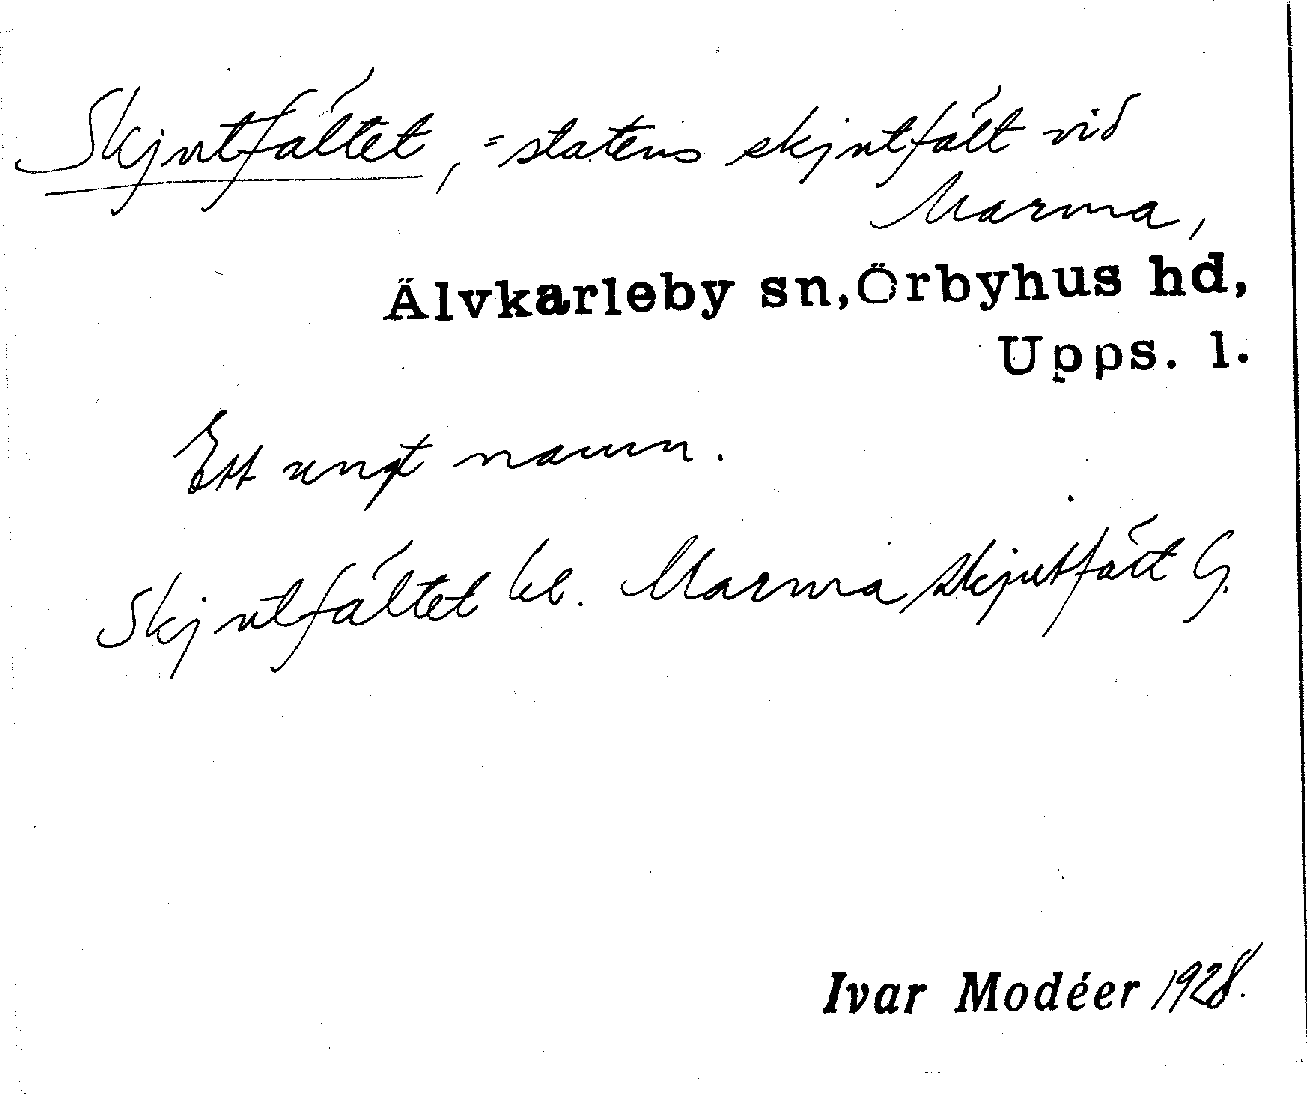 Skjutfältet, = statens skjutfält vid
Marma,
Älvkarleby sn, Örbyhus hd,
Upps. l.
Ett ungt namn.
Skjutfältet bl. Marma skjutfält G.
Ivar Modéer 1928.